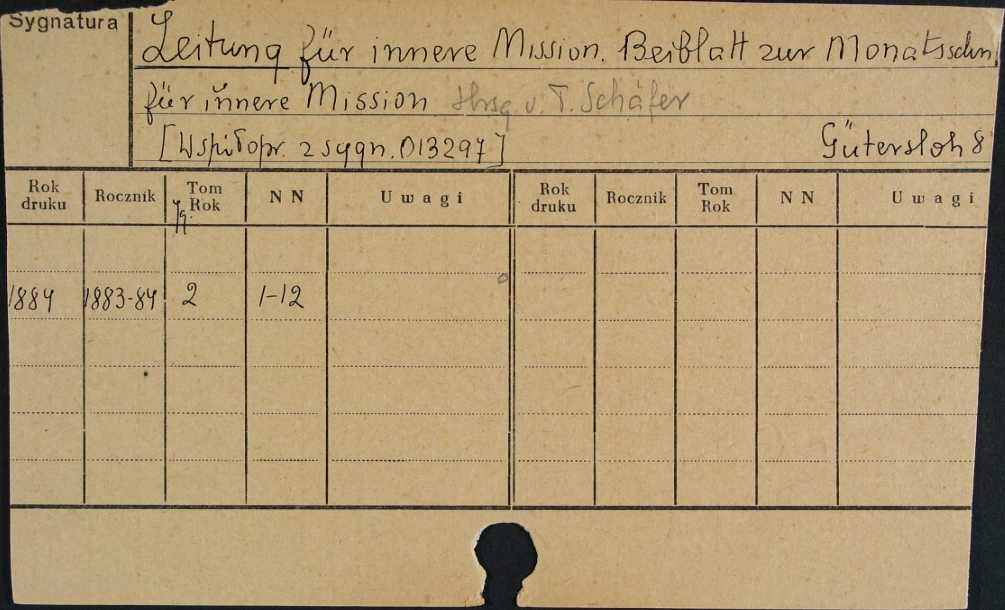 Sygnatura
Leitung für innere Mission. Beiblatt zur Monatsschr.
für innere Mission Hrsg. v. T. Schäfer
[Współopr. z sygn. 013297] Gütersloh 8
Rok druku Rocznik Tom Rok NN Uwagi Rok druku Rocznik Tom Rok NN Uwagi
Jg.
1884 1883-84 2 1-12